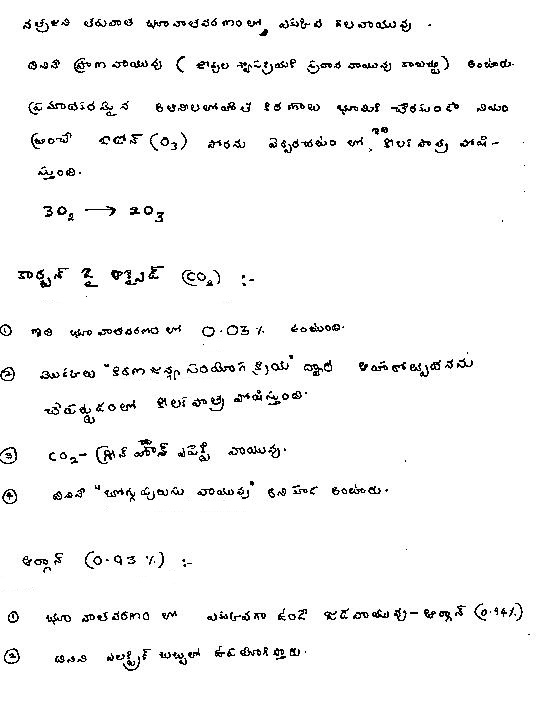 నత్రజని తరువాత భూ వాతావరణం లో, ఎక్కువ గల వాయువు.
దీనిని ప్రాణ వాయువు ( జీవుల శ్వాసక్రియకి ప్రధాన వాయువు కాబట్టి) అంటారు.
ప్రమాదకరమైన అతినీలలోహిత కిరణాలు భూమికి చేరకుండా నియం
త్రించే ఓజోన్ (O3) పొరను ఏర్పరచటం లో, ఇది కీలక పాత్ర పోషి-
స్తుంది.
3O2 → 2O3
కార్బన్ డై ఆక్సైడ్ (CO2) :-
① ఇది భూ వాతావరణం లో 0.03% ఉంటుంది.
② మొక్కలు "కిరణ జన్య సంయోగ క్రియ" ద్వారా ఆహారోత్పాదనను
చేయడంలో కీలక పాత్ర పోషిస్తుంది.
③ CO2 - గ్రీన్ హౌస్ ఎఫెక్ట్ వాయువు.
④ దీనినే "బొగ్గు పులుసు వాయువు" అని కూడ అంటారు.
ఆర్గాన్ (0.93%) :-
① భూ వాతావరణం లో ఎక్కువగా ఉండే జడవాయువు - ఆర్గాన్ (0.94%)
② దీనిని ఎలక్ట్రిక్ బుల్బులలో ఉపయోగిస్తారు.